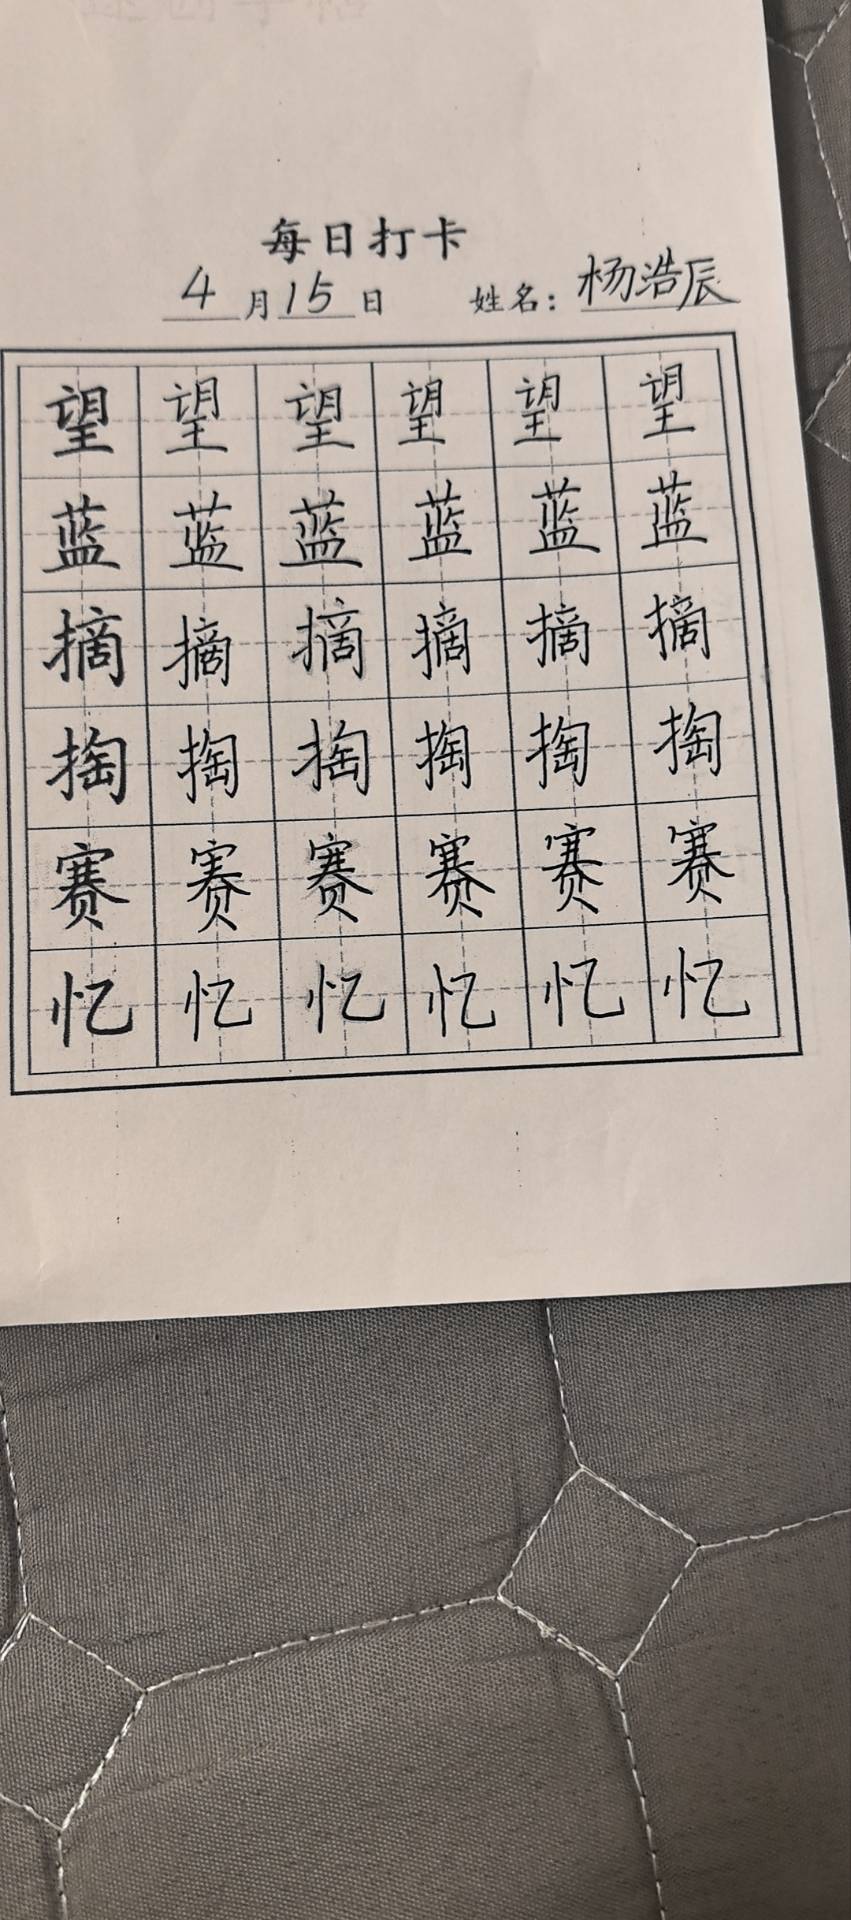 每日打卡
4月15日 姓名：杨浩辰
望望望望望望
蓝蓝蓝蓝蓝蓝
摘摘摘摘摘摘
掏掏掏掏掏掏
赛赛赛赛赛赛
忆忆忆忆忆忆